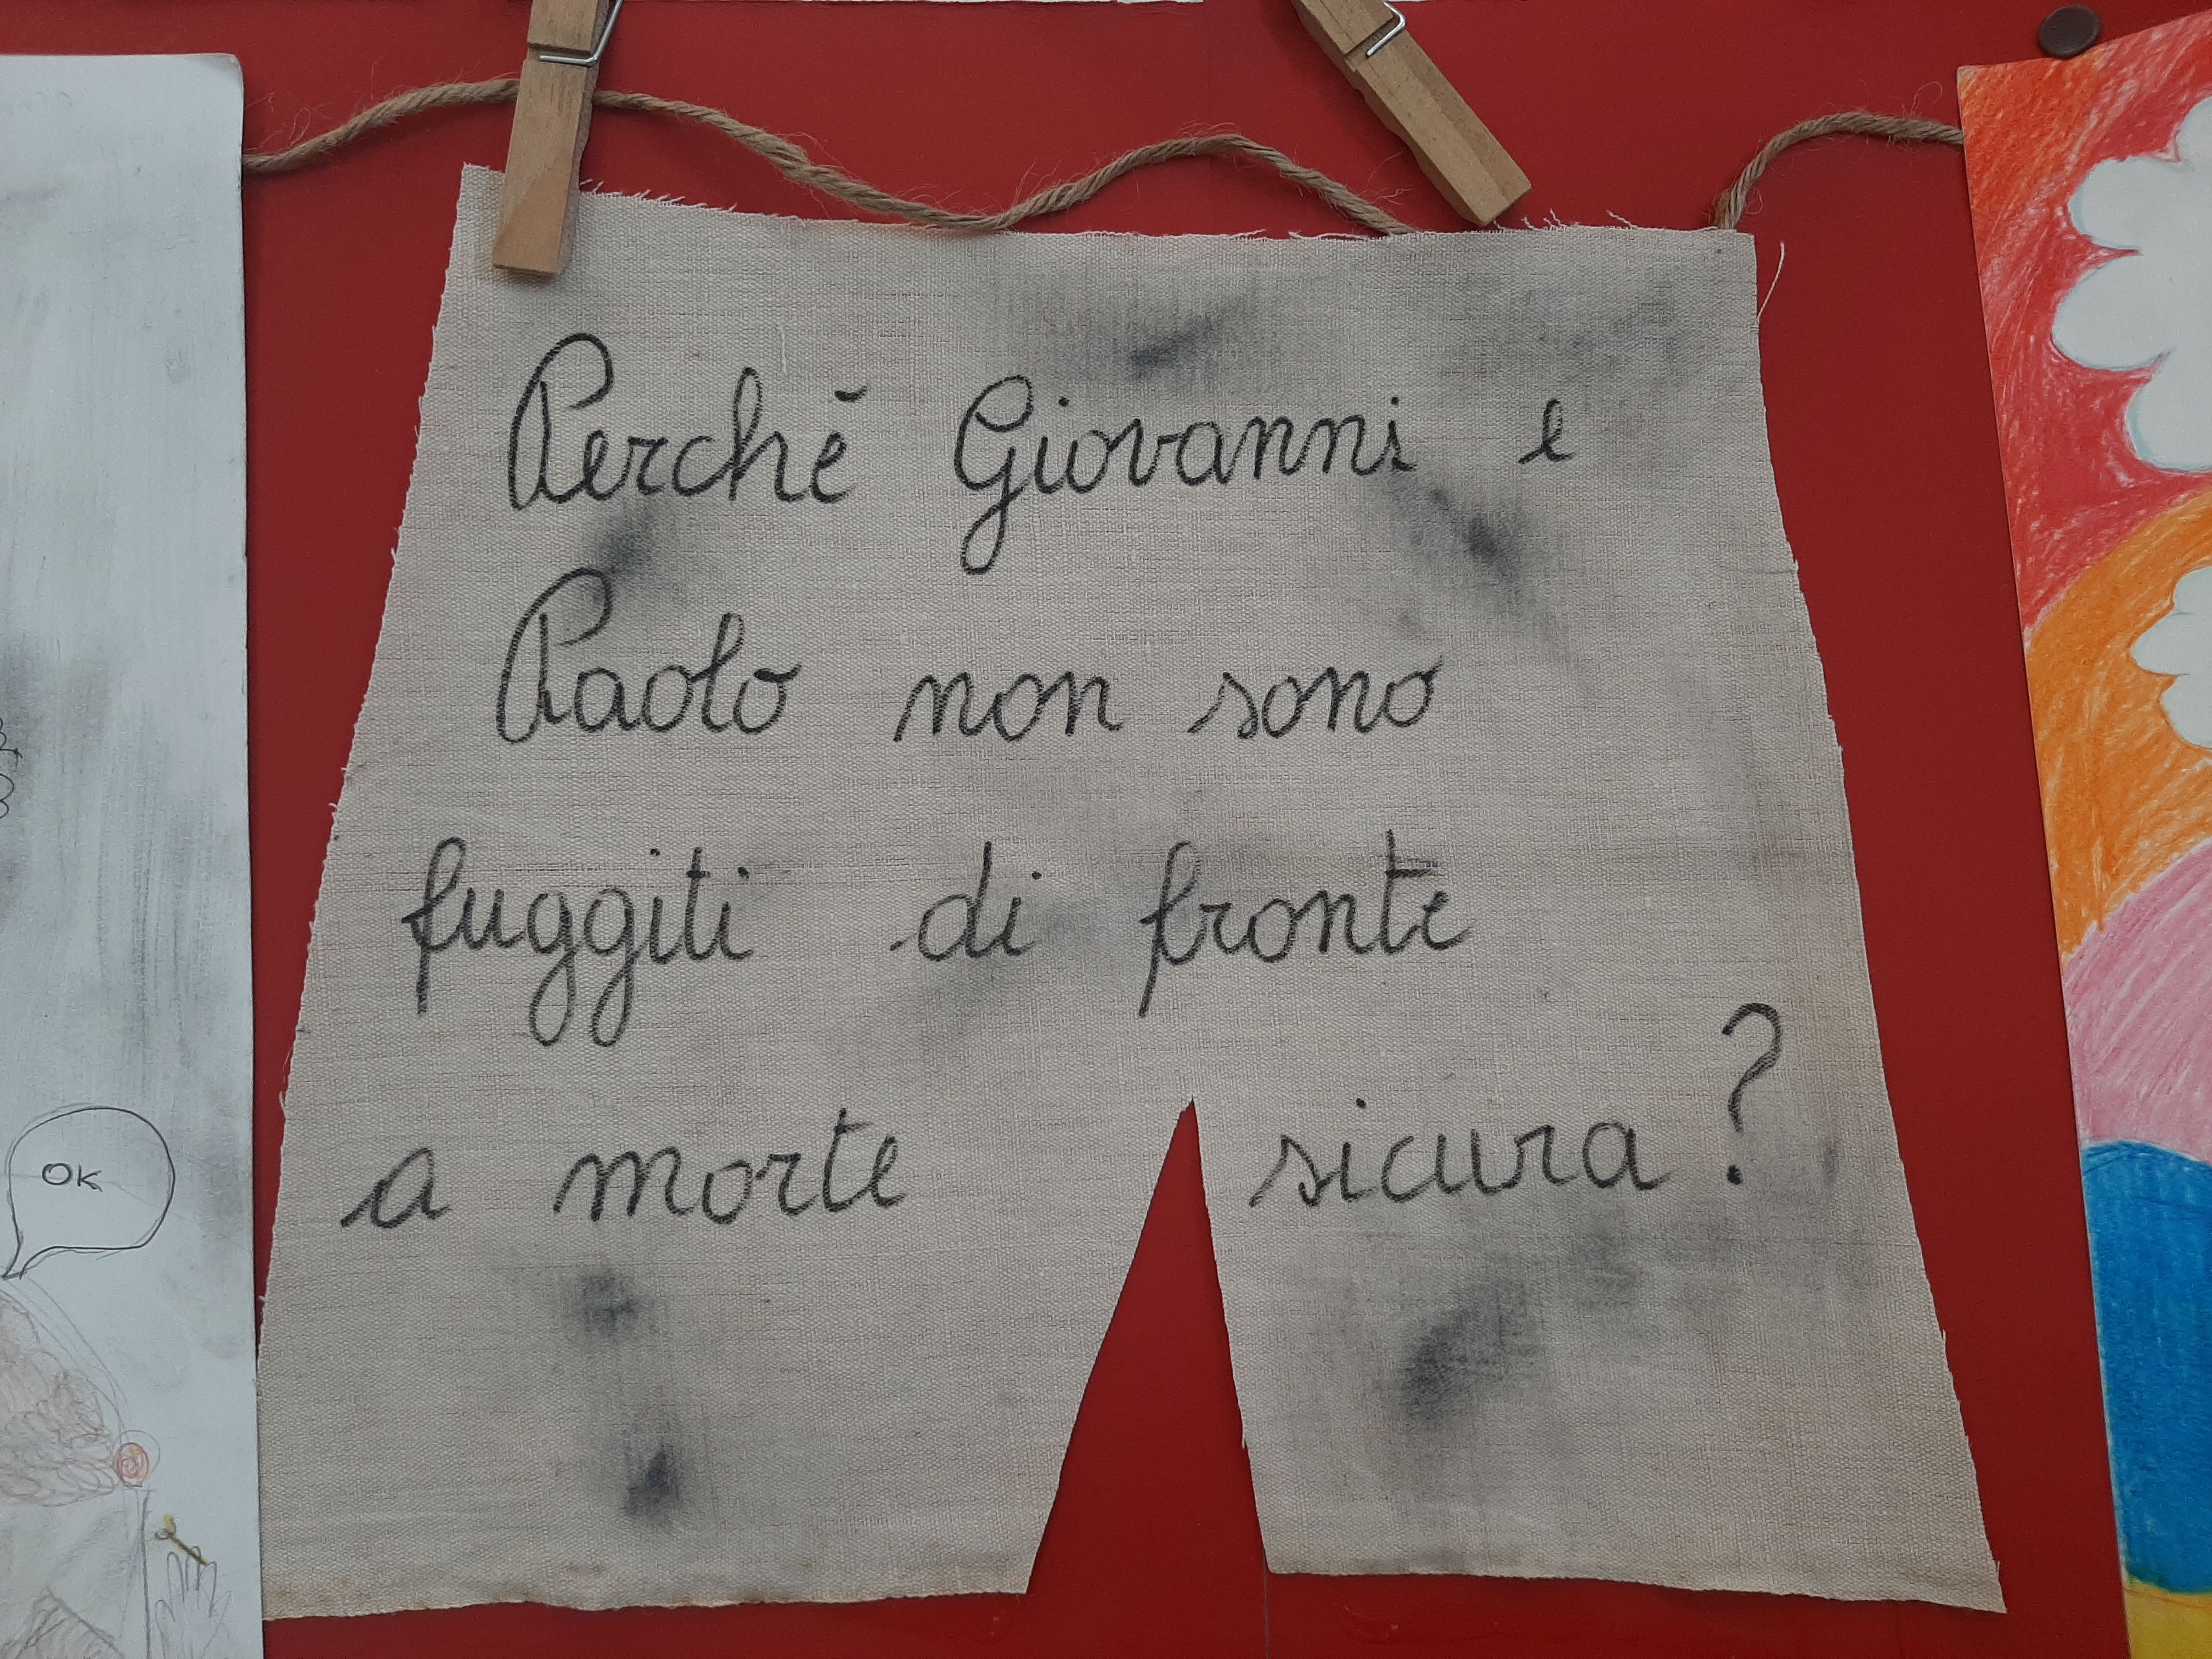 Perchē Giovanni e
Paolo non sono
fuggiti di fronte
a morte sicura?
OK